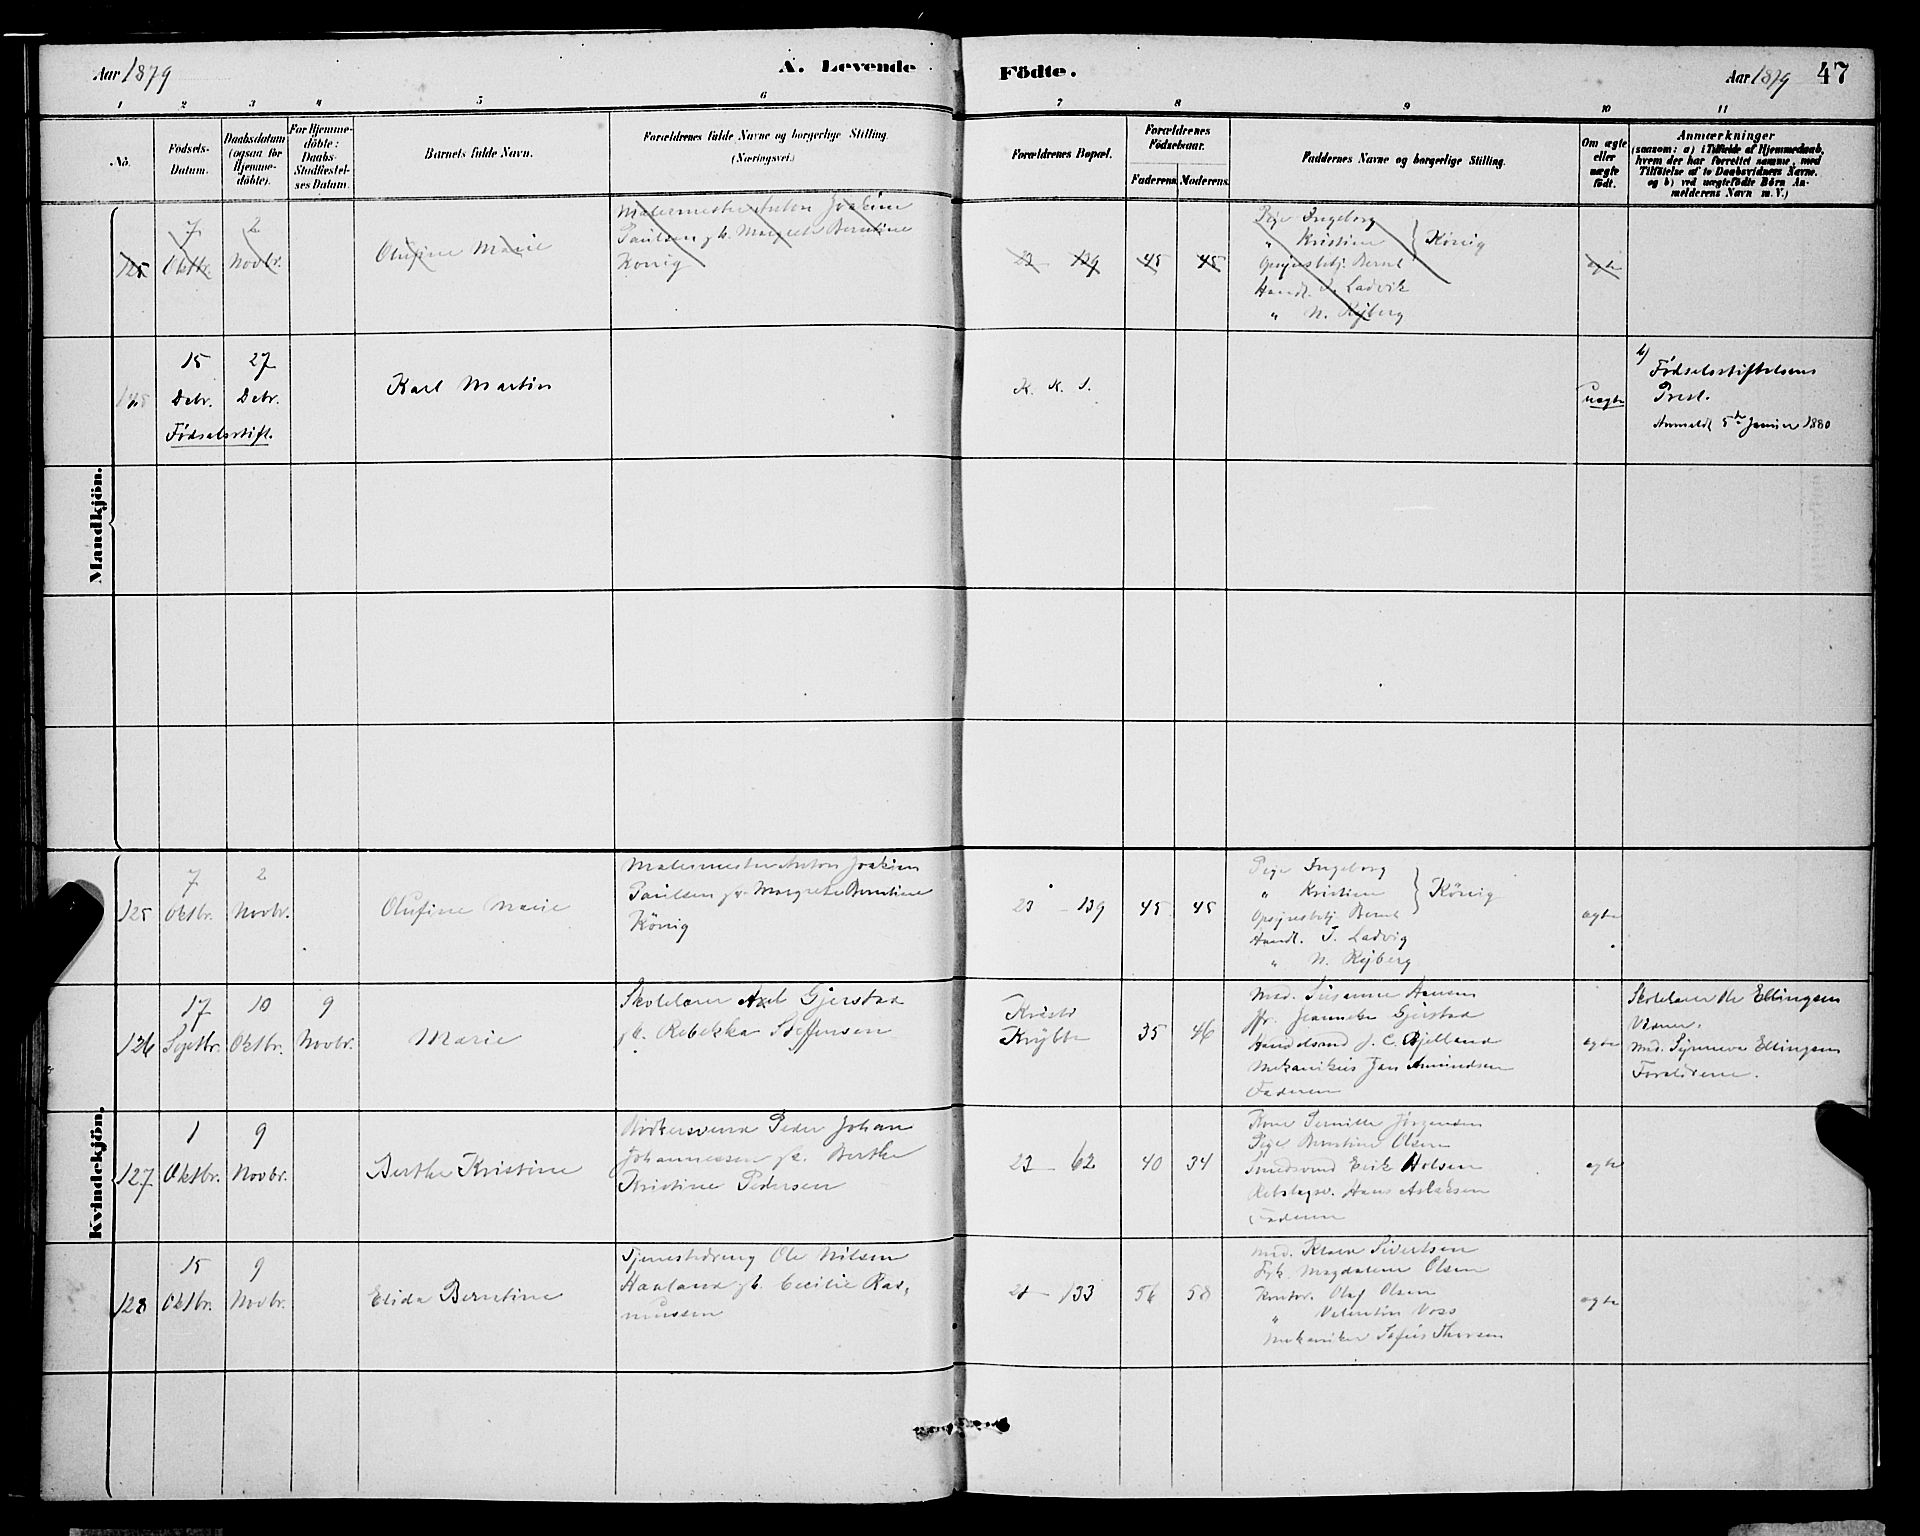 Aar 1879
A. Levende
Födte.
Aar 1879 47
1 2 3 4 5 6 7 8 9 10 11
No.
Födsels-
Datum.
Daabsdatum
(ogsaa for
Hjemme-
döbte).
For Hjemme-
döbte:
Daabs-
Stadfæstel-
ses Datum.
Barnets fulde Navn.
Forældrenes fulde Navne og borgerlige Stilling.
(Næringsvei.)
Forældrenes Bopæl.
Forældrenes
Födselsaar.
Faderens. Moderens.
Faddernes Navne og borgerlige Stilling.
Om ægte
eller
uægte
født.
Anmærkninger
(saasom: a) i Tilfælde af Hjemmedaab,
hvem der har forrettet samme, med
Tilföielse af to Daabsvidners Navne,
og b) ved uægtefödte Børn An-
melderens Navn m. V.)
Mandkjön.
125
7
Oktbr.
2
Novbr.
Olufine Marie
Malermester Anton Joakim
Paulsen gb. Margrete Berntine
König
23 139
45
45
Pige Ingeborg
" Kristine } König
Opsynsbetj. Bernt
Handl. T. Ladvik
" N. Ryberg
ægte
15
Debr.
27
Debr.
Födselsstift.
Karl Martin
K. K. S.
uægte
b)
Födselsstiftelsens
Prest.
Anmeldt 5te Januar 1880
Kvindekjön.
125
7
Oktbr.
2
Novbr.
Olufine Marie
Malermester Anton Joakim
Paulsen gb. Margrete Berntine
König
23 – 139
45
45
Pige Ingeborg
" Kristine } König
Opsynsbetj. Bernt
Handl. T. Ladvig
" N. Ryberg
ægte
126
17
Septbr.
10
Oktbr.
9
Novbr.
Marie
Skolelærer Axel Gjerstad
gb. Rebekka Steffensen
Kristi
Krybbe
35
46
Mad. Susanne Hansen
Jfr. Jeanneke Gjerstad
Handelsmd J. C. Kjelland
Mekanikus Jan Amundsen
Faderen
ægte
Skolelærer Ole Ellingsen
Vidner.
Mad. Synneva Ellingsen
Forældrene.
127
1
Oktbr.
9
Novbr.
Berthe Kristine
Bödkersvend Peder Johan
Johannessen gb. Berthe
Kristine Pedersen
23 – 62
40
34
Kone Pernille Jörgensen
Pige Berntine Olsen
Smedsvend Erik Holsen
Rebslagsv. Hans Aslaksen
Faderen
ægte
128
15
Oktbr.
9
Novbr.
Elida Berntine
Tjenestedreng Ole Nilsen
Haaland gb. Cecilie Ras-
mussen
21 – 133
56
58
Mad. Klara Sivertsen
Frk. Magdalene Olsen
Kontor. Olaf Olsen
" Valentin Voss
Mekaniker Sofus Thorsen
ægte